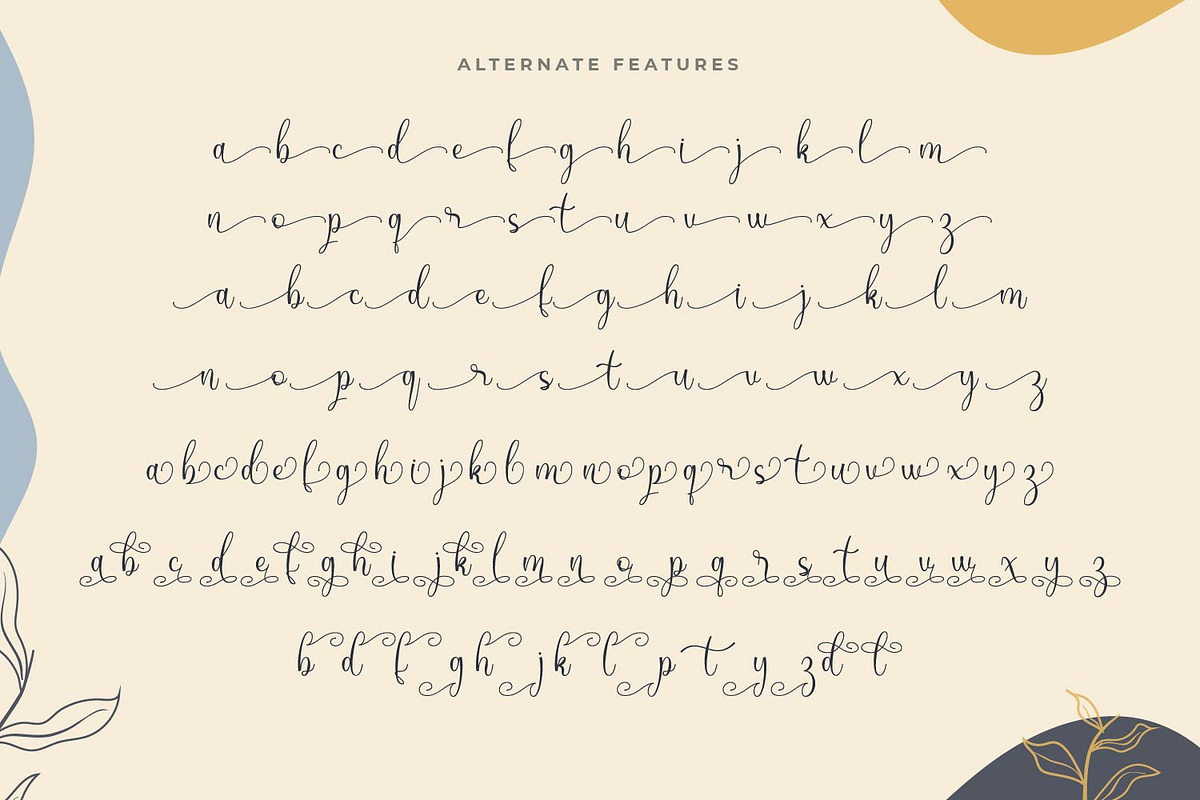 ALTERNATE FEATURES
a b c d e f g h i j k l m
n o p q r s t u v w x y z
a b c d e f g h i j k l m
n o p q r s t u v w x y z
a b c d e f g h i j k l m n o p q r s t u v w x y z
a b c d e f g h i j k l m n o p q r s t u v w x y z
b d f g h j k l p t y z d t